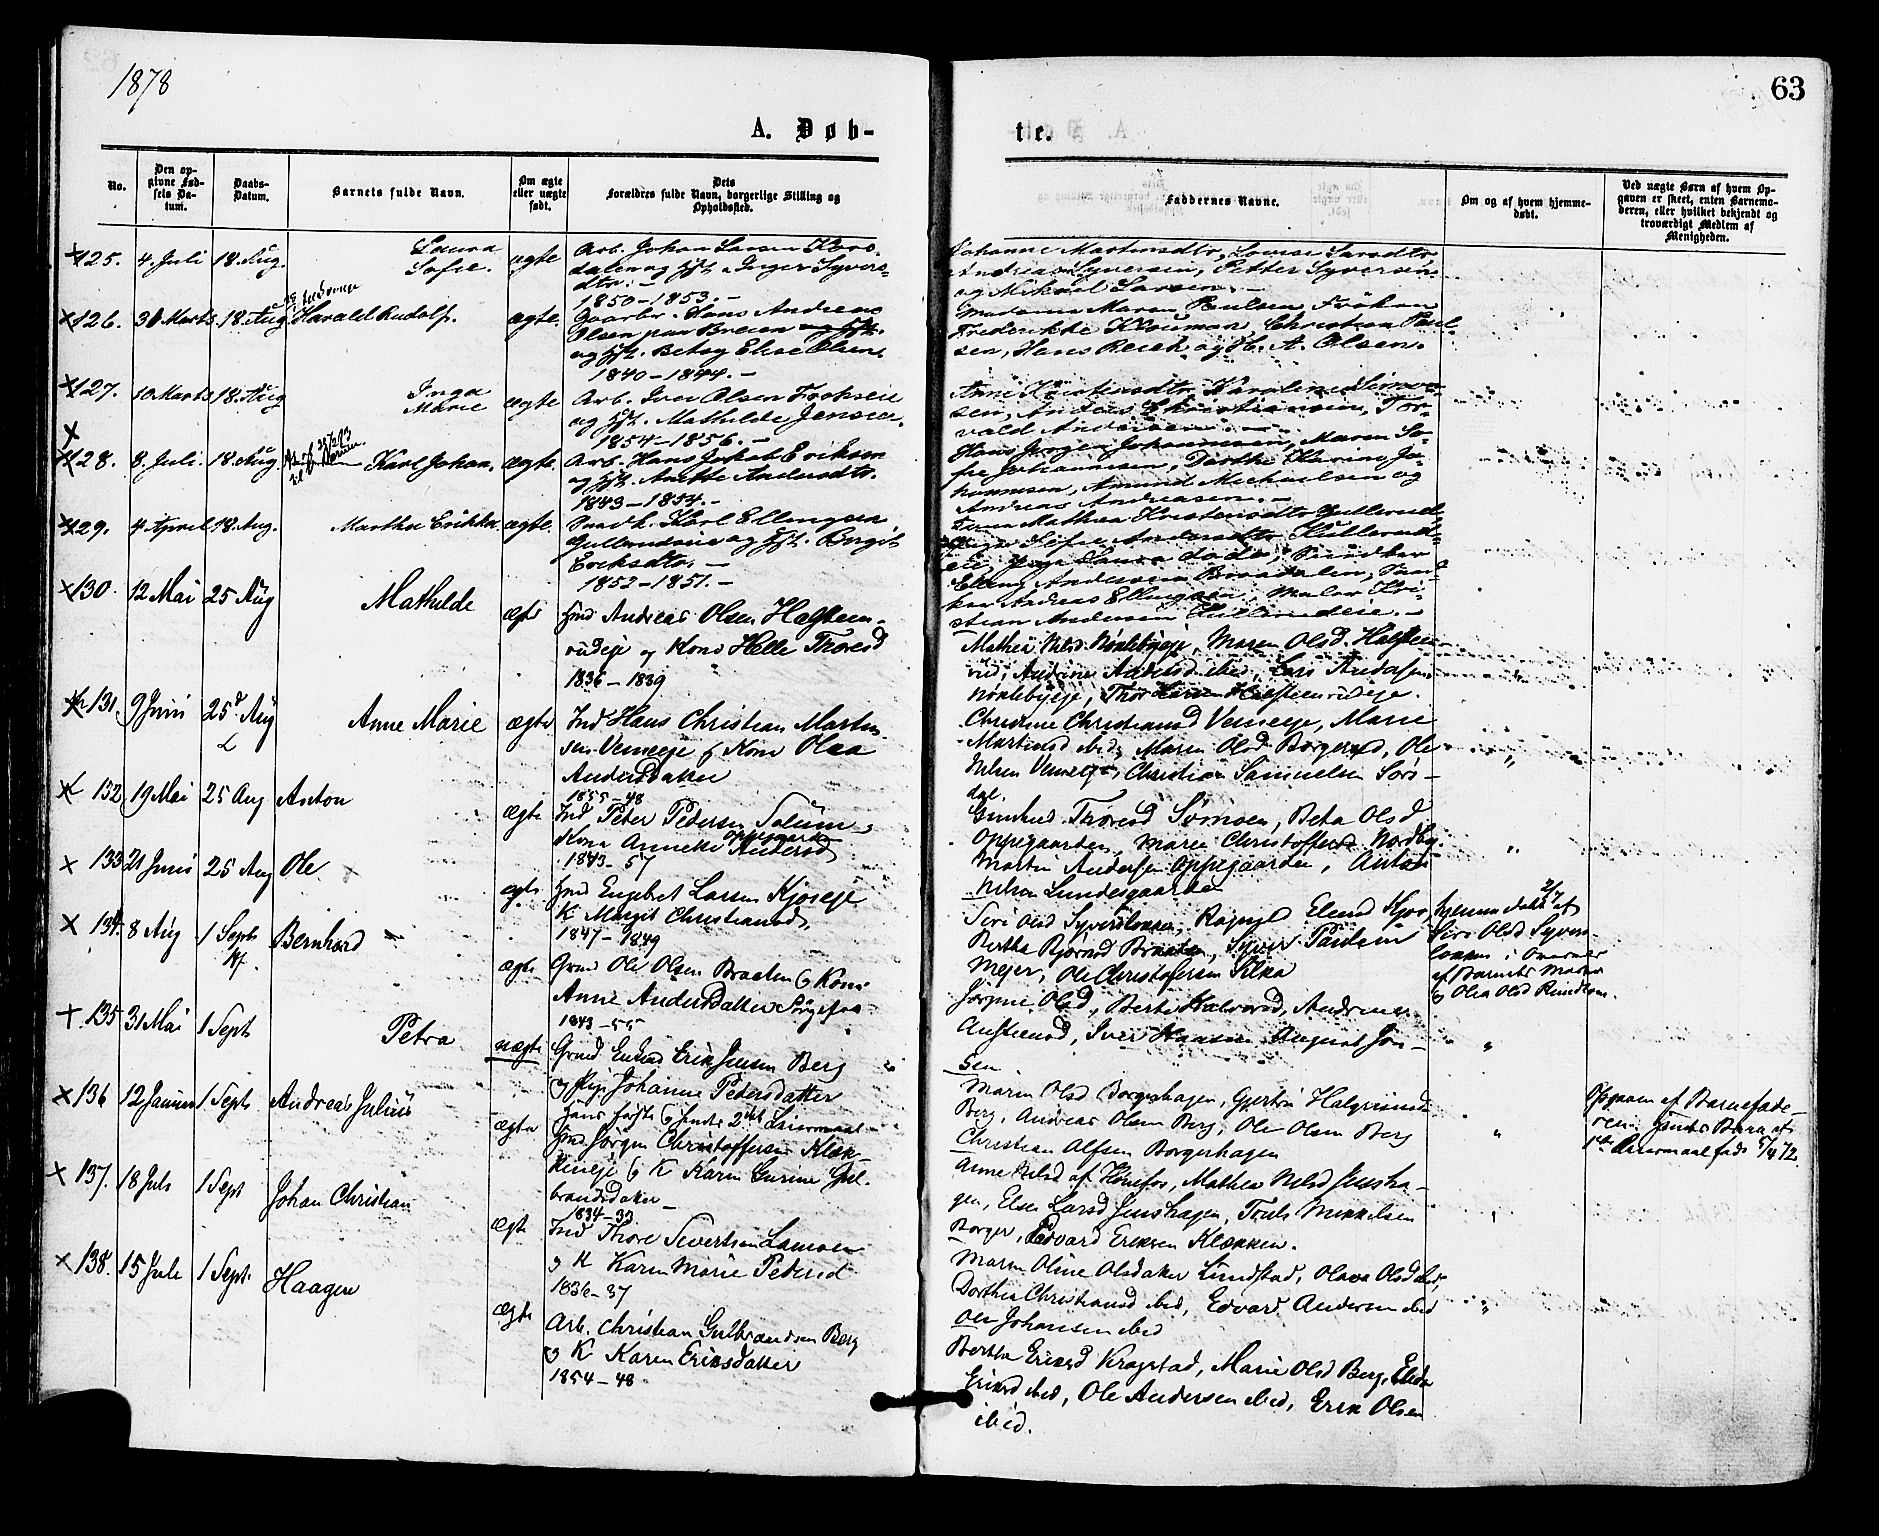 1878
63
A. Døb-
te.
No.
Den opgivne Fødsels Datum.
Daabs-Datum.
Barnets fulde Navn.
Om ægte eller uægte født.
Dets Forældres fulde Navn, borgerlige Stilling og Opholdssted.
Faddernes Navne.
Om og af hvem hjemmedøbt.
Ved uægte Børn af hvem Opgaven er skeet, enten Barnemoderen, eller hvilket bekjendt og troværdigt Medlem af Menigheden.
125. 4 Juli 18. Aug. Laura Sofie. ægte
Arb. Johan Larsen
og Hst. Inger Syvers-
dtr. –
1850–1853. –
Johanne Martinsdtr, Louise Larsdtr,
Andreas Syversen, Petter Syversen
og Mikael Larsen. –
126. 30 Marts 18. Aug Harald Rudolf. ægte.
Gaardbr. Hans Andreas
Olsen paa Breien
og Hst. Betsy Elise Olsen,
1840–1844. –
Madame Maren Poulsen, Frøken
Frederikke Klouman, Christian Poul-
sen, Hans Reich og H. A. Olsen.
127. 10 Marts 18. Aug Inga Marie ægte
Arb. Iver Olsen
og Hst. Mathilde Jensen.
1854–1856. –
Anne Kristiansdtr, Karoline Simon-
sen, Anders Christiansen, Tor-
vald Andersen. –
128. 8. Juli 18. Aug Karl Johan, ægte
Arb. Hans Jakob Eriksen
og Hst. Anette Andersdtr.
1843–1854. –
Hans Jørgen Johannesen, Maren So-
fie Johannesen, Dorthe Karine Jo-
hannesen, Amund Michaelsen og
Andreas Andreasen. –
129. 4 April 18. Aug. Martha Erikka. ægte.
Karl Ellingsen
og Hst. Birgit
Eriksdtr. –
1852–1851. –
Mathea Kristensdtr
Sofie Andersdtr
Pige Laura
Elling Andersen Braadalen,
Andreas Ellingsen, Maler Kri-
stian Andersen
130. 12 Mai 25 Aug Mathilde ægte
Hmd Andreas Olsen Halsteen-
rudeje og Kone Helle Thoresd
1836–1839
Mathea Nilsd Nørlebyeje, Maren Olsd. Halsteen-
rud, Andrine Andersd ibid, Lars
Nørlebyeje, Thor Larsen Halsteenrudeje.
131 9 Juni 25d Aug Anne Marie ægte
Ind Hans Christian Marten-
sen Vemeeje og Kone Olea
Andersdatter
1855–48
Christine Christiansd Vemeeje, Marie
Martinsd ibid, Maren Olsd Borgerud, Ole
Nilsen Vemeeje, Christian Samuelsen Sørs-
dal
132 19 Mai 25 Aug Anton ægte
Ind Peter Pedersen Solum-
Oppegaarden
Kone Annette Andersd
1843. 57
Gunhild Thoresd Sømoen, Beta Olsd
Oppegaarden, Marie Christoffersd Nordby,
Martin Andersen Oppegaarden, Anton
Nilsen Lundesgaarden
133 21 Juni 25 Aug Ole ægte
Hmd Engebret Larsen Kjoseje
K Margit Christiansd,
1847–1849
Siri Olsd Syverslokken, Ragnhild Elend
Bertha Bjørnsd Braaten, Syver Paulsen
Mejer, Ole Christofersen Klea
hjemmedøbt 2/7 af
Siri Olsd Syvers-
lokken i Overvær
af Barnets Moder
og Olea Olsd
134. 8 Aug 1 Sept Bernhard ægte
Grmd Ole Olsen Braaten og Kone
Anne Andersdatter
1843–55
Jørgine Olsd, Berte Halvorsd, Andrine
Austensd, Iver Hansen August Jon-
sen
135 31 Mai 1 Sept Petra uægte
Grmd Enkmd Erik Jensen Berg
og Pige Johanne Pedersdatter
hans første og hendes 2det Leiermaal
Maren Olsd Borgerhagen, Gjertru Halgrimsd
Berg, Andreas Olsen Berg, Ole Olsen Berg
Christian Alfsen Borgerhagen
Opgaven af Barnefade-
ren. Barn af
1ste Leiermaal født 5/4 72.
136 12 Januar 1 Sept Andreas Julius ægte
Hmd Jørgen Christoffersen Klæk-
keneje og K Karen Gurine Gul-
brandsdatter –
1834–39
Anne Nilsd af Hønefos, Mathea Nilsd Jenshа-
gen, Else Larsd Jenshagen, Truls Mikkelsen
Borger, Edvard Eriksen Klækken.
137. 18 Juli 1 Sept Johan Christian ægte
Ind Thore Sivertsen Lamoen
og K Karen Marie Pedersd
1836–37
Maren Oline Olsdatter Lundstad, Olava Olsd ibid,
Dorthea Christiansd ibid, Edvard Andersen ibid
Ole Johansen ibid
138. 15 Juli 1 Sept. Haagen ægte
Arb. Christian Gulbrandsen Berg
og K Karen Eriksdatter
1854–48
Bertha Eriksd Kragstad, Marie Olsd Berg,
Eriksd ibid, Ole Andersen ibid, Erik Olsen
ibid.